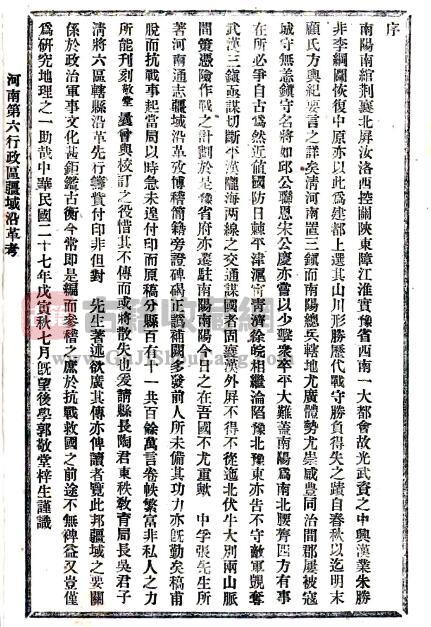 序
南陽南綰荆襄北屏汝洛西控關陝東障江淮實豫省西南一大都會故光武資之中興漢業朱勝
非李綱圖恢復中原亦以此爲建都上選其山川形勝歷代戰守勝負得失之蹟自春秋以迄明末
顧氏方輿紀要言之詳矣清河南置三鎭而南陽總兵轄地尤廣體勢尤崇咸豐同治間郡屢被寇
城守無恙鎭守名將如邱公聯恩宋公慶亦嘗以少擊衆卒平大難蓋南陽爲南北腰膂四方有事
在所必爭自古爲然近値國防日棘平津滬甯青濟徐皖相繼淪陷豫北豫東亦告不守敵軍覬奪
武漢三鎭亟謀切斷平漢隴海兩線之交通謀國者固武漢外屏不得不從迤北伏牛大別兩山脈
間策憑險作戰之計劃於是豫省府亦遷駐南陽南陽今日之在吾國不尤重歟 中孚張先生所
著河南通志疆域沿革攷博稽簡籍旁證碑碣正譌補闕多發前人所未備其功力亦旣勤矣稿甫
脫而抗戰事起當局以時急未遑付印而原稿分縣百有十一共百餘萬言卷帙繁富非私人之力
所能刊刻敬堂曩曾與校訂之役惜其不傳而或將散失也爰請縣長陶君東秩敎育局長吳君子
清將六區轄縣沿革先行籌貲付印非但對 先生著述欲廣其傳亦俾讀者覽此邦疆域之要關
係於政治軍事文化甚鉅鑑古衡今常即是編而參稽之庶於抗戰救國之前途不無裨益又豈僅
爲硏究地理之一助哉中華民國二十七年戊寅秋七月旣望後學郭敬堂梓生謹識
河南第六行政區疆域沿革考